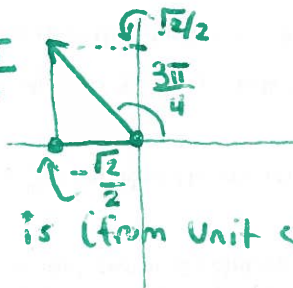 √2/2
3π/4
-√2/2
is (from unit c